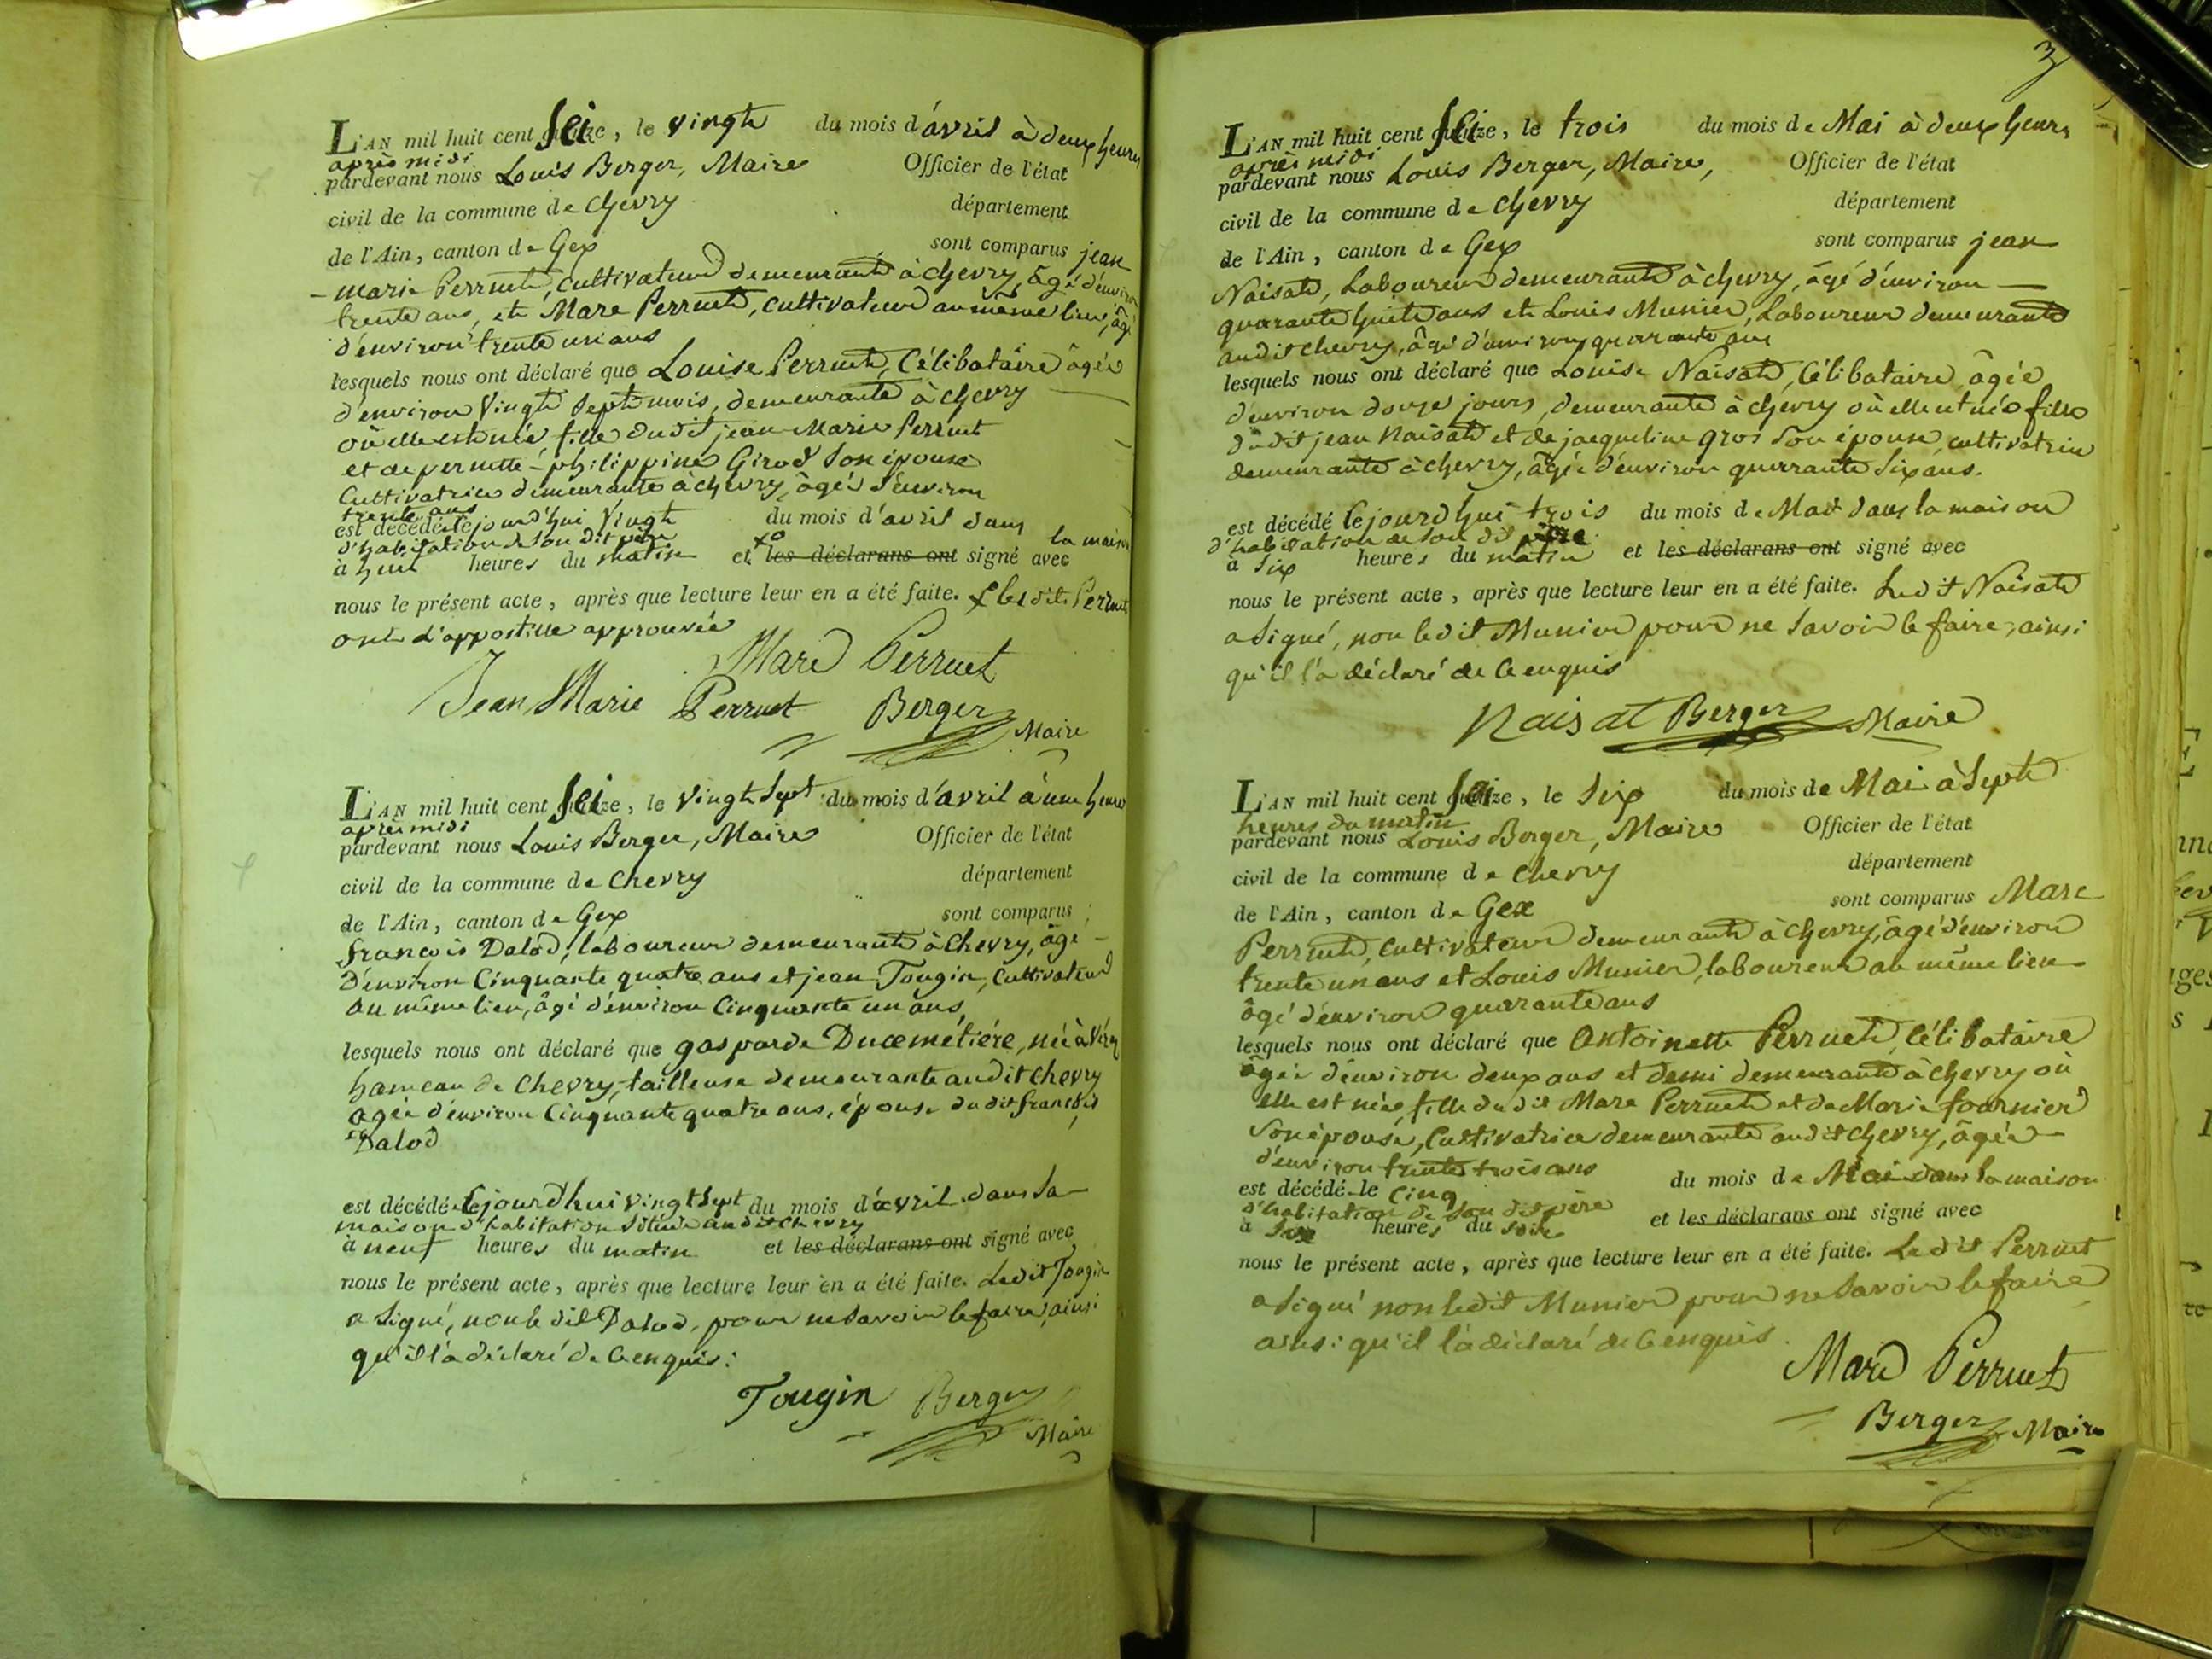 L'AN mil huit cent Seize, le vingt du mois d'avril à deux heures
après midi
pardevant nous Louis Berger, Maire Officier de l'état
civil de la commune de Chevry département
de l'Ain, canton de Gex sont comparus jean
- marie Perruet, cultivateur demeurant à chevry, âgé d'environ
trente ans, et Marc Perruet, cultivateur au même lieu, âgé
d'environ trente un ans
lesquels nous ont déclaré que Louise Perruet, Célibataire âgée
d'environ Vingt Sept mois, demeurante à chevry
où elle est née fille dudit jean Marie Perruet
et de pernette-philippine Girod son épouse
Cultivatrice demeurante à chevry, âgée d'environ
trente ans
est décédé le jourd'hui Vingt du mois d'avril dans la maison
d'habitation de son dit père
à huit heures du matin et les déclarans ont signé avec
nous le présent acte, après que lecture leur en a été faite. x les dits Perruet
ont l'appostille approuvée
Marc Perruet
Jean Marie Perruet Berger Maire
L'AN mil huit cent Seize, le vingt Sept du mois d'avril à une heure
après midi
pardevant nous Louis Berger, Maire Officier de l'état
civil de la commune de Chevry département
de l'Ain, canton de Gex sont comparus
françois Dalod, laboureur demeurant à Chevry, âgé
D'environ Cinquante quatre ans et jean Tougin, Cultivateur
au même lieu, âgé d'environ Cinquante un ans,
lesquels nous ont déclaré que gasparde Ducemétiére, née à Véraz
hameau de Chevry, tailleuse demeurante audit chevry
agée d'environ Cinquante quatre ans, épouse dudit françois
Dalod
est décédé le jourd'hui vingt Sept du mois d'avril dans sa
maison d'habitation située audit Chevry
à neuf heures du matin et les déclarans ont signé avec
nous le présent acte, après que lecture leur en a été faite. Ledit Tougin
a signé, non le dit Dalod, pour ne savoir le faire, ainsi
qu'il l'a déclaré de ce enquis.
Tougin Berger
Maire
3
L'AN mil huit cent Seize, le trois du mois de Mai à deux heures
après midi
pardevant nous Louis Berger, Maire, Officier de l'état
civil de la commune de Chevry département
de l'Ain, canton de Gex sont comparus jean
Naisat, Laboureur demeurant à chevry, âgé d'environ
quarante huit ans et Louis Munier, Laboureur demeurant
audit chevry, âgé d'environ quarante ans
lesquels nous ont déclaré que Louise Naisat, Célibataire âgée
d'environ douze jours, demeurante à chevry où elle est née fille
dudit jean Naisat et de jacqueline gros son épouse, cultivatrice
demeurante à chevry, âgée d'environ quarante Six ans.
est décédé le jourd'hui trois du mois de Mai dans la maison
d'habitation de son dit père
à Six heures du matin et les déclarans ont signé avec
nous le présent acte, après que lecture leur en a été faite. Ledit Naisat
a signé, non ledit Munier pour ne savoir le faire, ainsi
qu'il l'a déclaré de ce enquis
Naisat Berger Maire
L'AN mil huit cent Seize, le Six du mois de Mai à Sept
heures du matin
pardevant nous Louis Berger, Maire Officier de l'état
civil de la commune de Chevry département
de l'Ain, canton de Gex sont comparus Marc
Perruet, cultivateur demeurant à chevry, âgé d'environ
trente un ans et Louis Munier, laboureur au même lieu
âgé d'environ quarante ans
lesquels nous ont déclaré que Antoinette Perruet, Célibataire
âgée d'environ deux ans et demi demeurante à chevry où
elle est née, fille dudit Marc Perruet et de Marie fournier
son épouse, Cultivatrice demeurante audit chevry, âgée
d'environ trente trois ans
est décédé le cinq du mois de Mai dans la maison
d'habitation de son dit père
à Six heures du soir et les déclarans ont signé avec
nous le présent acte, après que lecture leur en a été faite. Le dit Perruet
a signé non ledit Munier pour ne savoir le faire
ainsi qu'il l'a déclaré de ce enquis.
Marc Perruet
Berger Maire